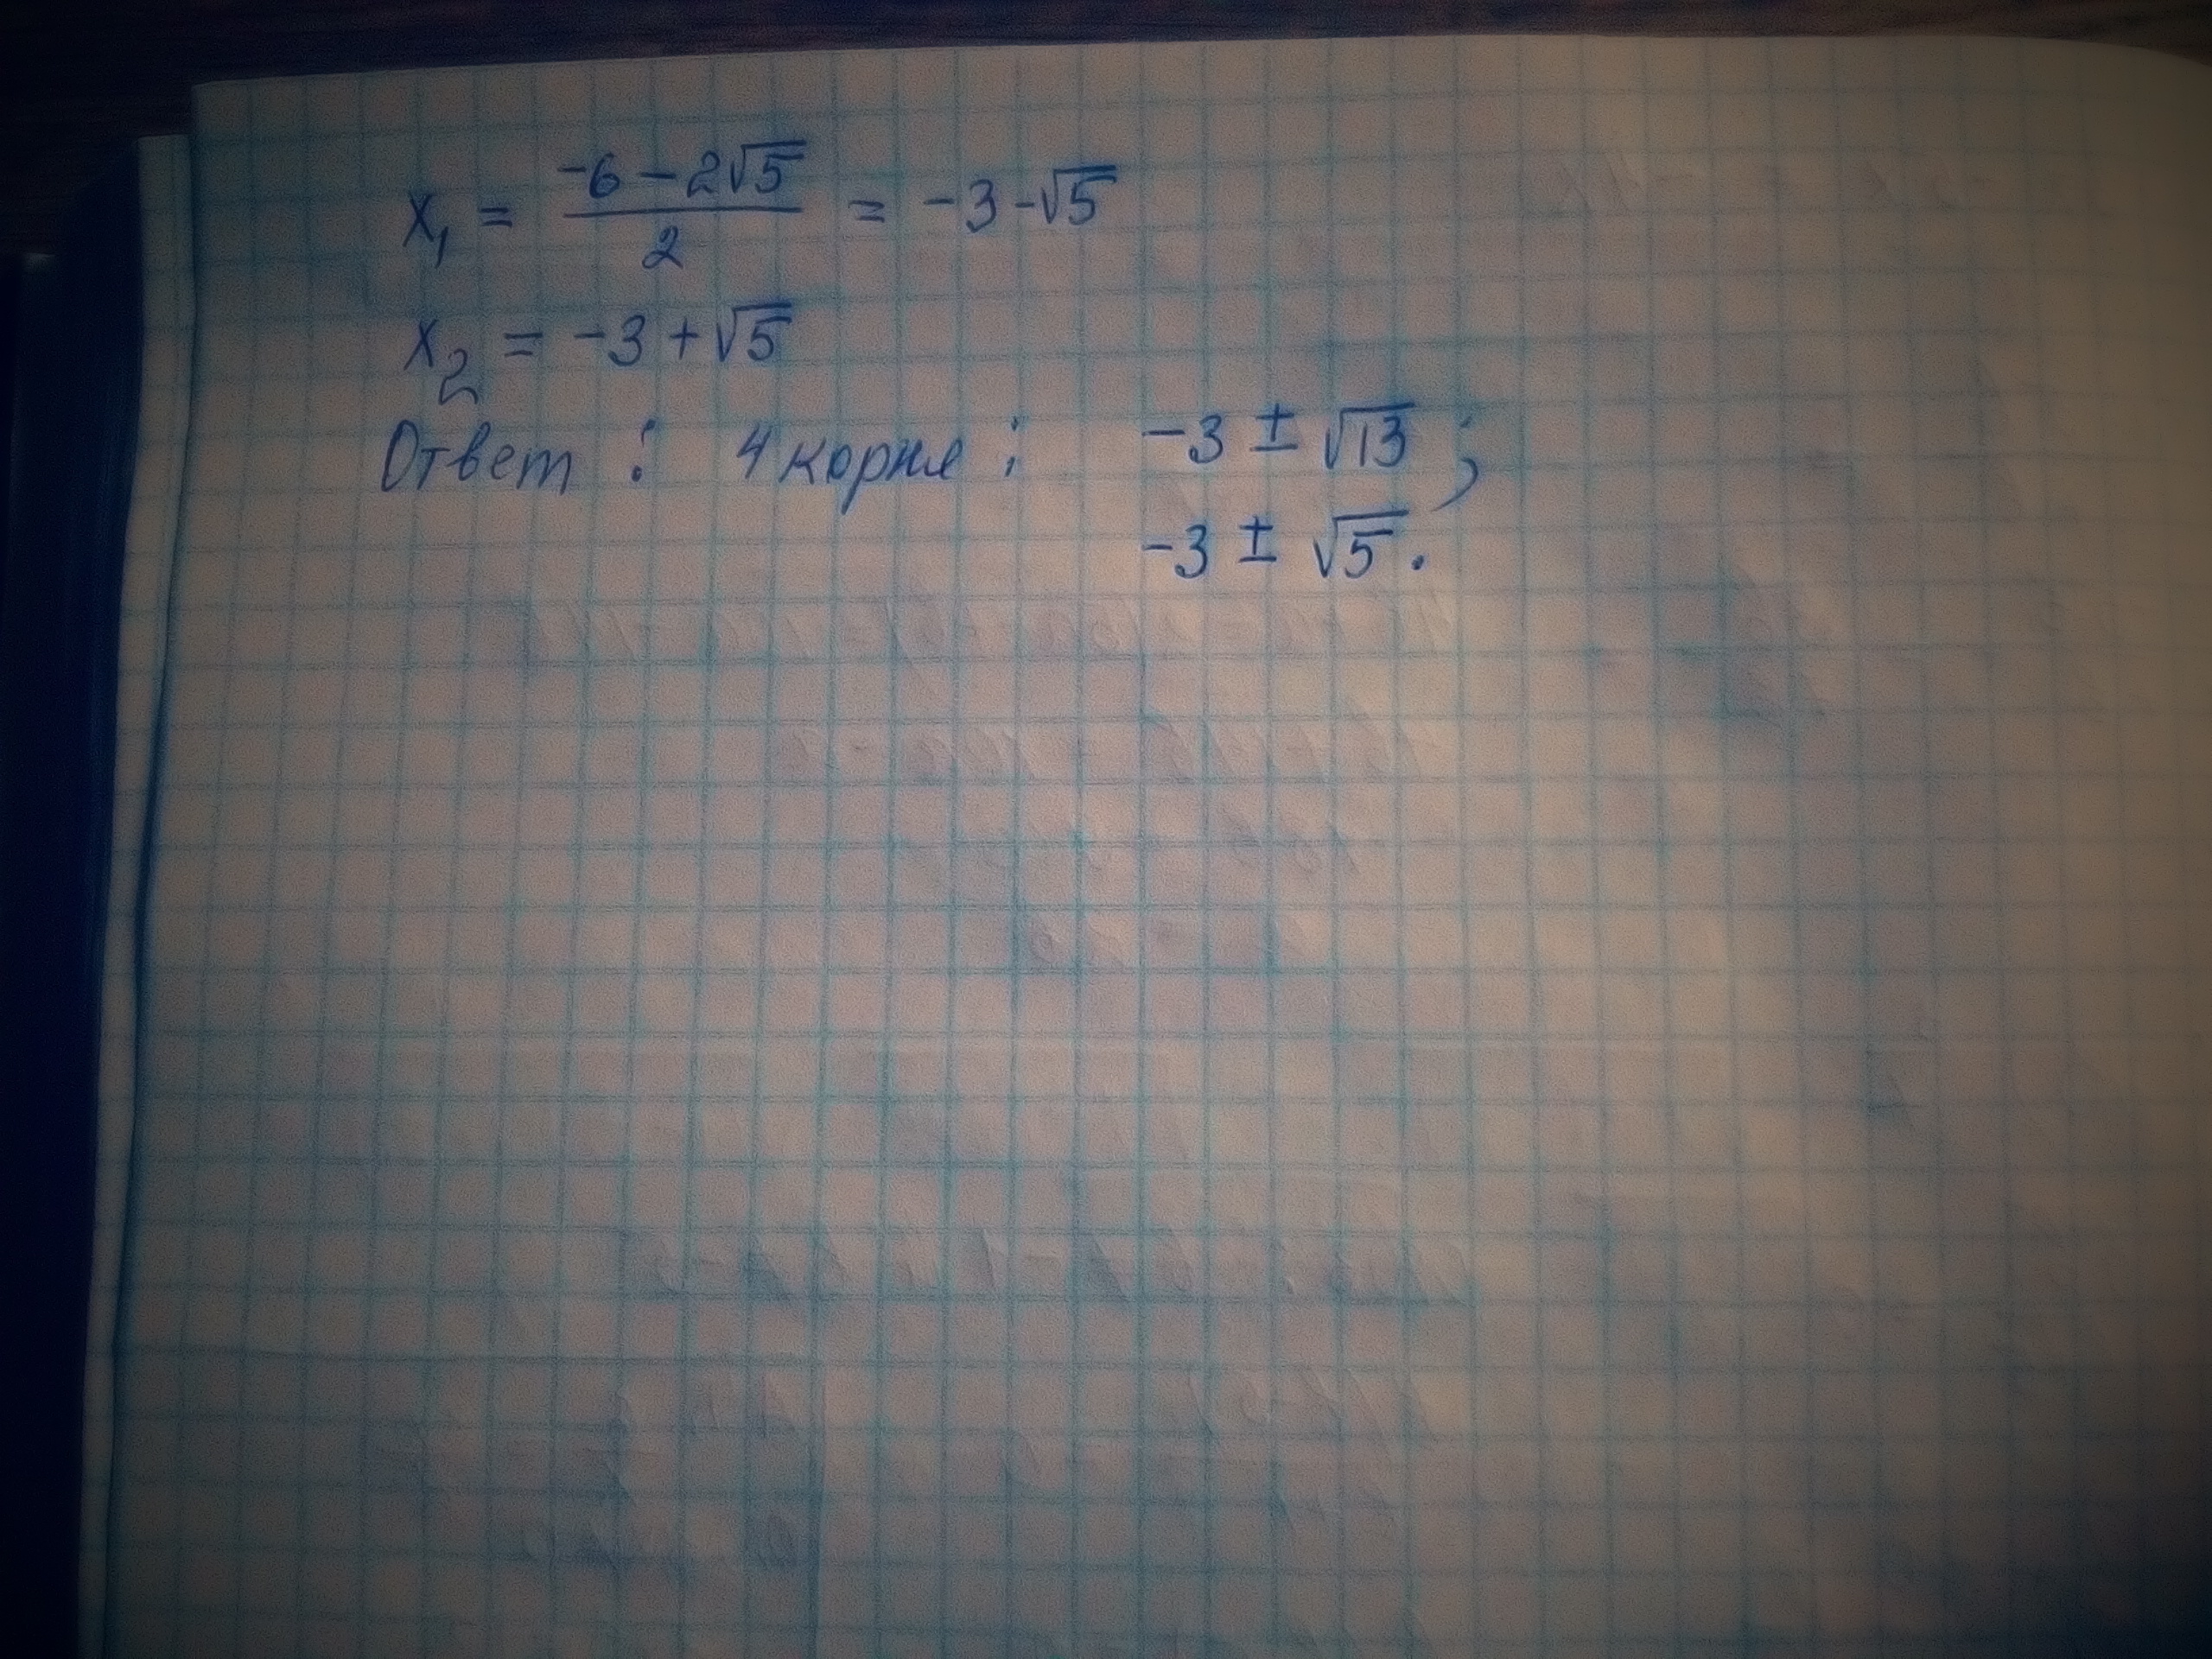 x₁ = (-6 - 2√5)/2 = -3 - √5
x₂ = -3 + √5
Ответ: 4 корня: -3 ± √13;
-3 ± √5.